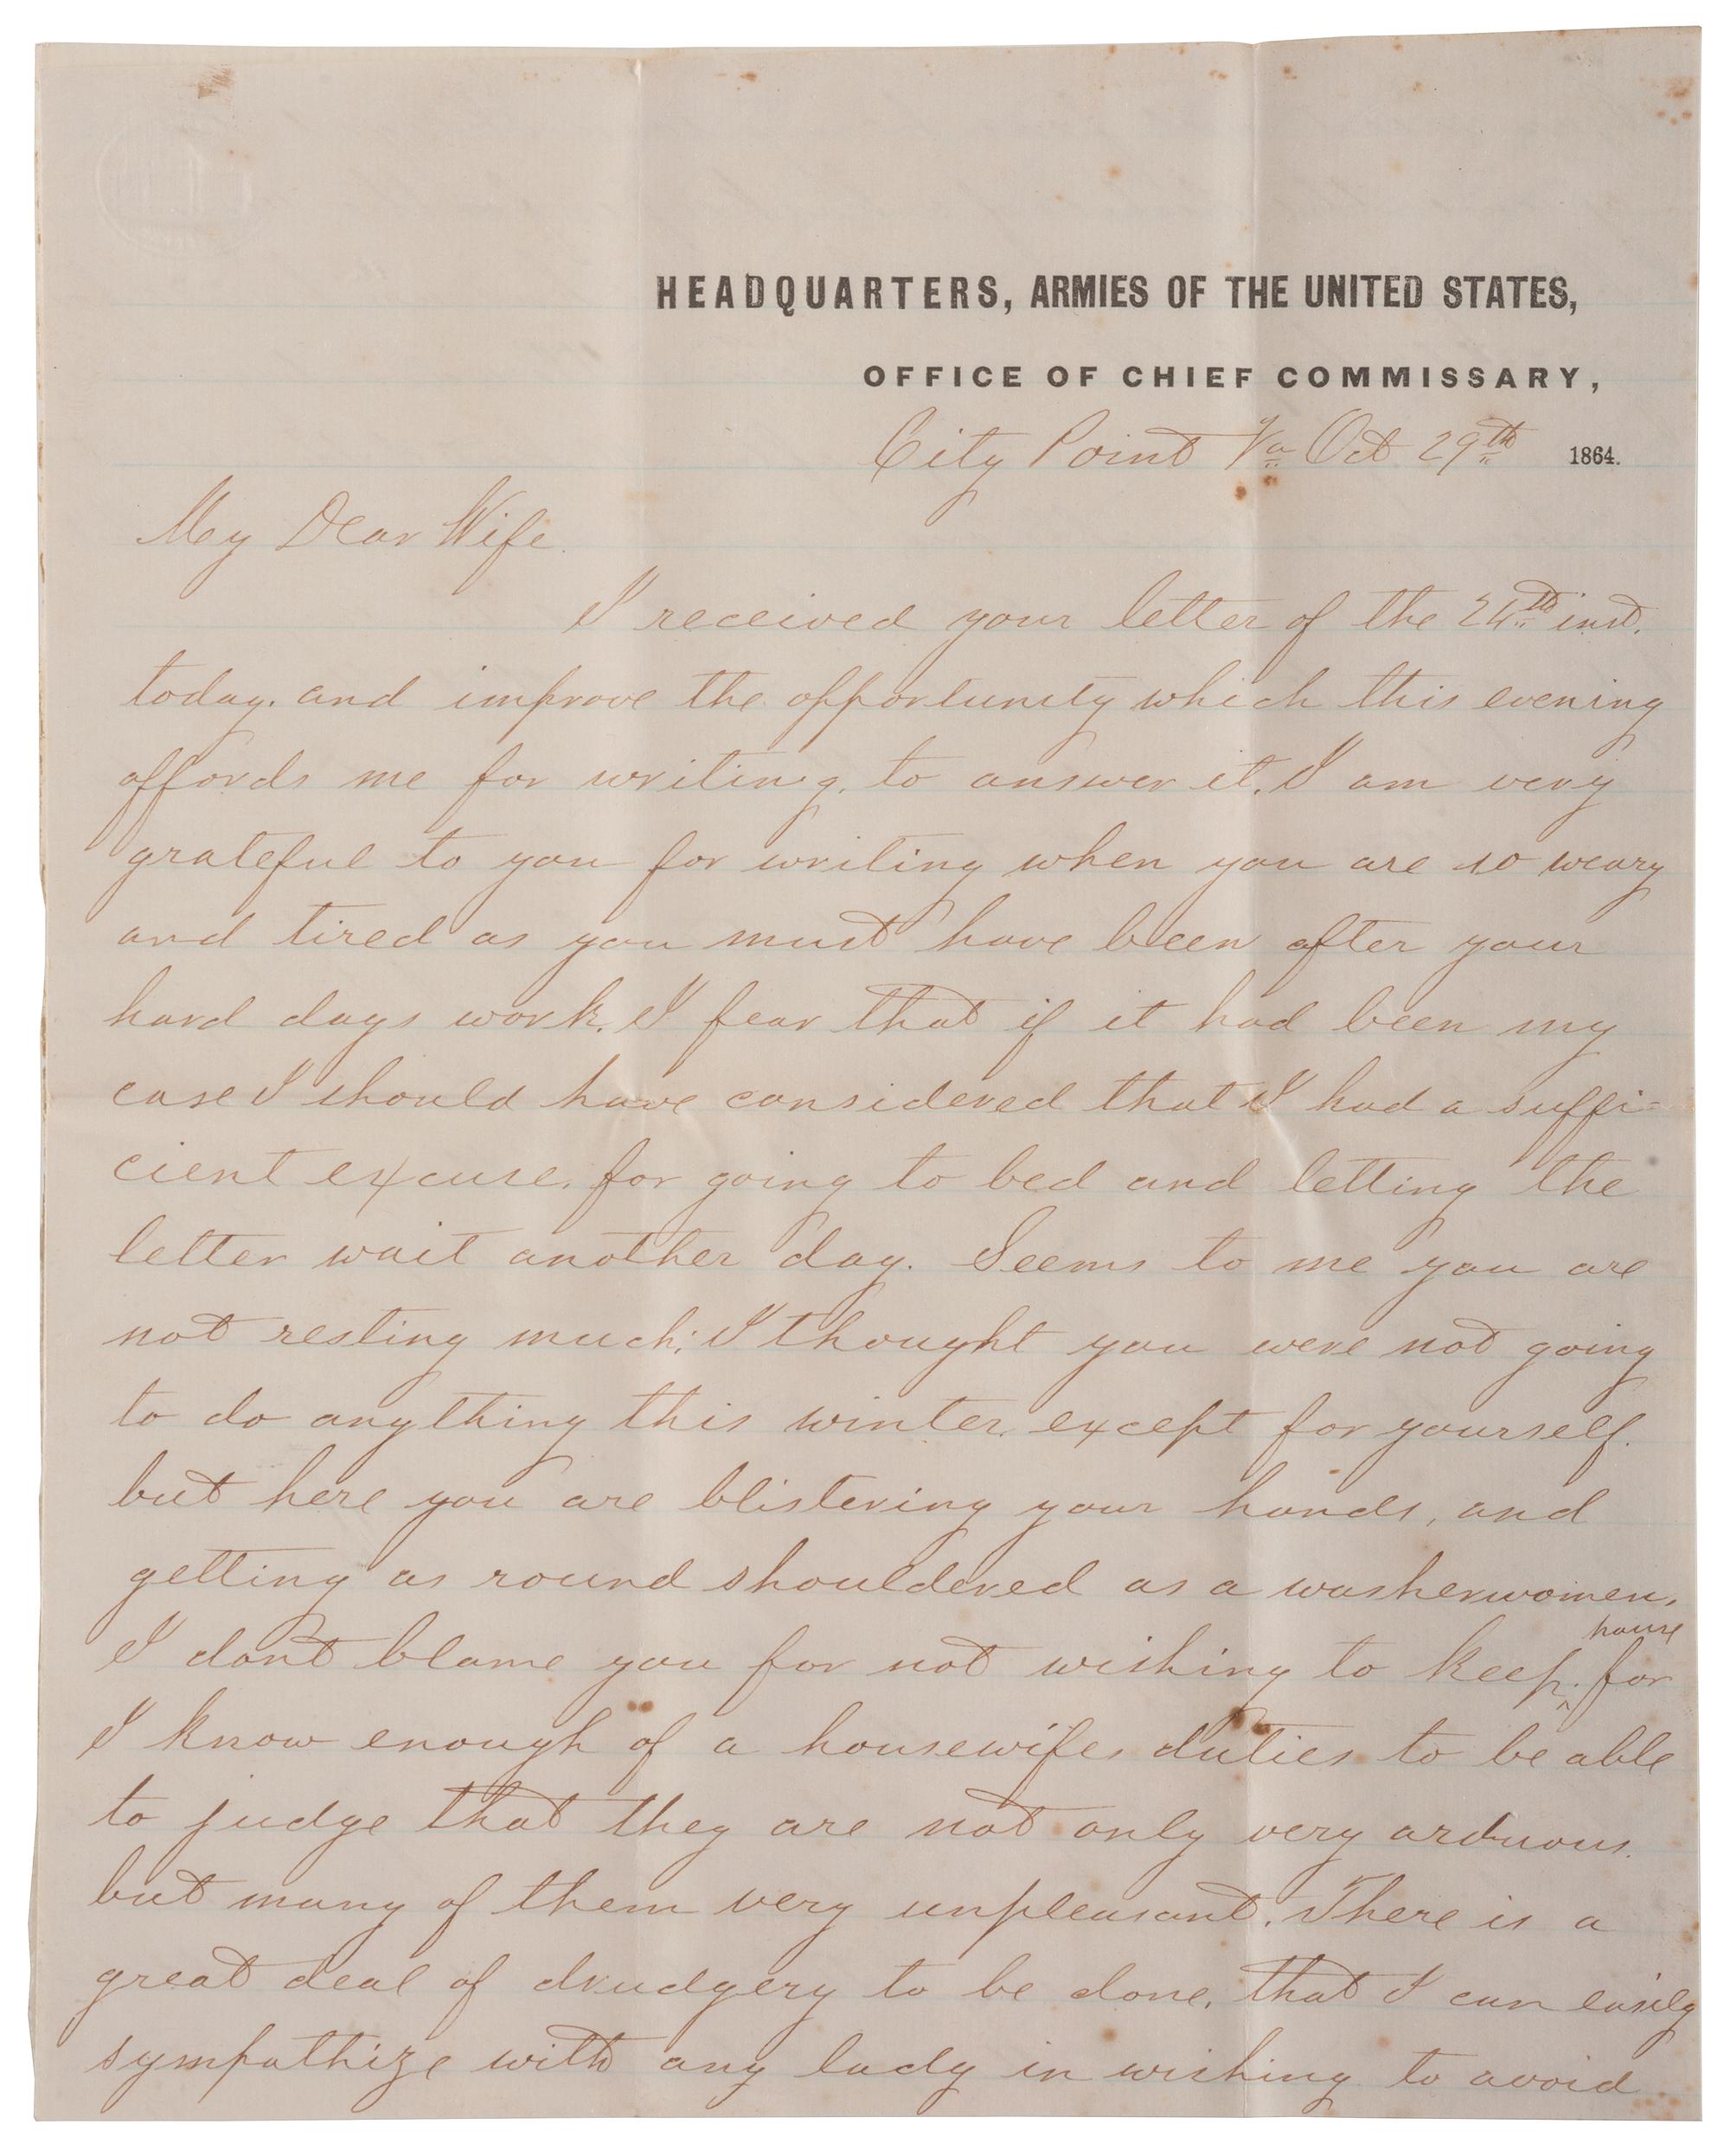 HEADQUARTERS, ARMIES OF THE UNITED STATES,
OFFICE OF CHIEF COMMISSARY,
City Point Va Oct 29th 1864.
My Dear Wife.
I received your letter of the 24th inst.
today. and improve the opportunity which this evening
affords me for writing, to answer it. I am very
grateful to you for writing when you are so weary
and tired as you must have been after your
hard days work. I fear that if it had been my
case I should have considered that I had a suffi-
cient excuse, for going to bed and letting the
letter wait another day. Seems to me you are
not resting much; I thought you were not going
to do anything this winter. except for yourself.
but here you are blistering your hands, and
getting as round shouldered as a washerwomen.
I dont blame you for not wishing to keep house. for
I know enough of a housewifes duties to be able
to judge that they are not only very arduous.
but many of them very unpleasant. There is a
great deal of drudgery to be done, that I can easily
sympathize with any lady in wishing to avoid